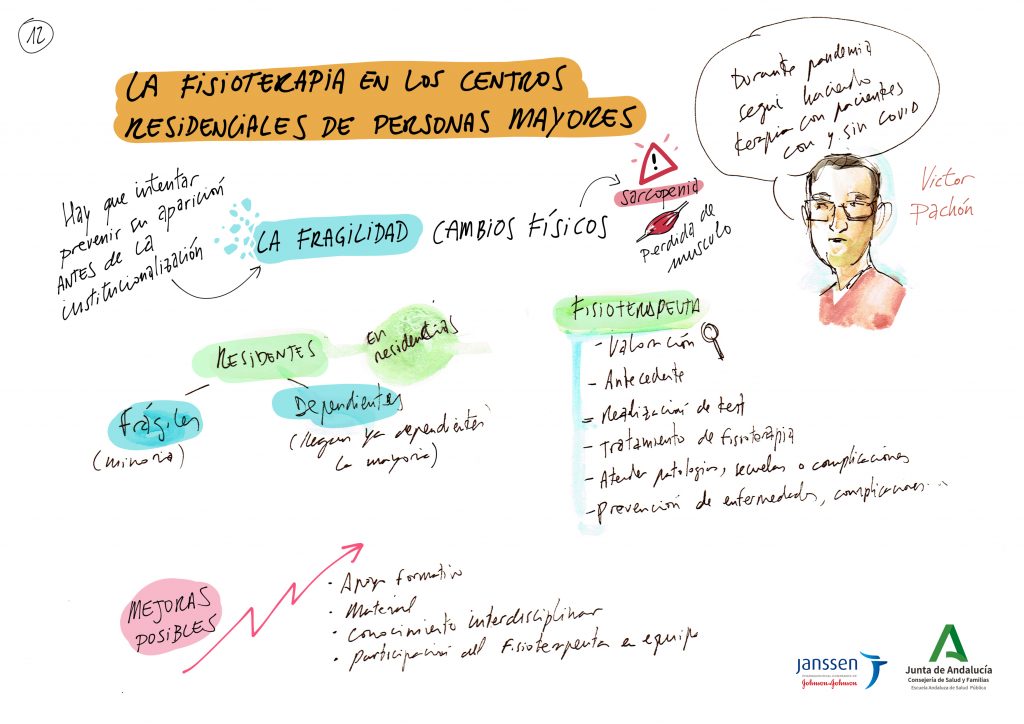 12
LA FISIOTERAPIA EN LOS CENTROS
RESIDENCIALES DE PERSONAS MAYORES
Durante pandemia
seguí haciendo
terapia con pacientes
con y sin covid
Victor
Pachón
Hay que intentar
prevenir su aparición
ANTES DE LA
institucionalización
LA FRAGILIDAD CAMBIOS FÍSICOS
!
Sarcopenia
perdida de
musculo
RESIDENTES
EN
residencias
Frágiles
(minoria)
Dependientes
(llegan ya dependientes
la mayoria)
FISIOTERAPEUTA
- Valoración
- Antecedente
- Realización de test
- Tratamiento de fisioterapia
- Atender patologias, secuelas o complicaciones
- Prevención de enfermedades, complicaciones...
MEJORAS
POSIBLES
· Apoyo formativo
· Material
· Conocimiento interdisciplinar
· Participación del fisioterapeuta en equipo
janssen
PHARMACEUTICAL COMPANIES OF
Johnson & Johnson
Junta de Andalucía
Consejería de Salud y Familias
Escuela Andaluza de Salud Pública